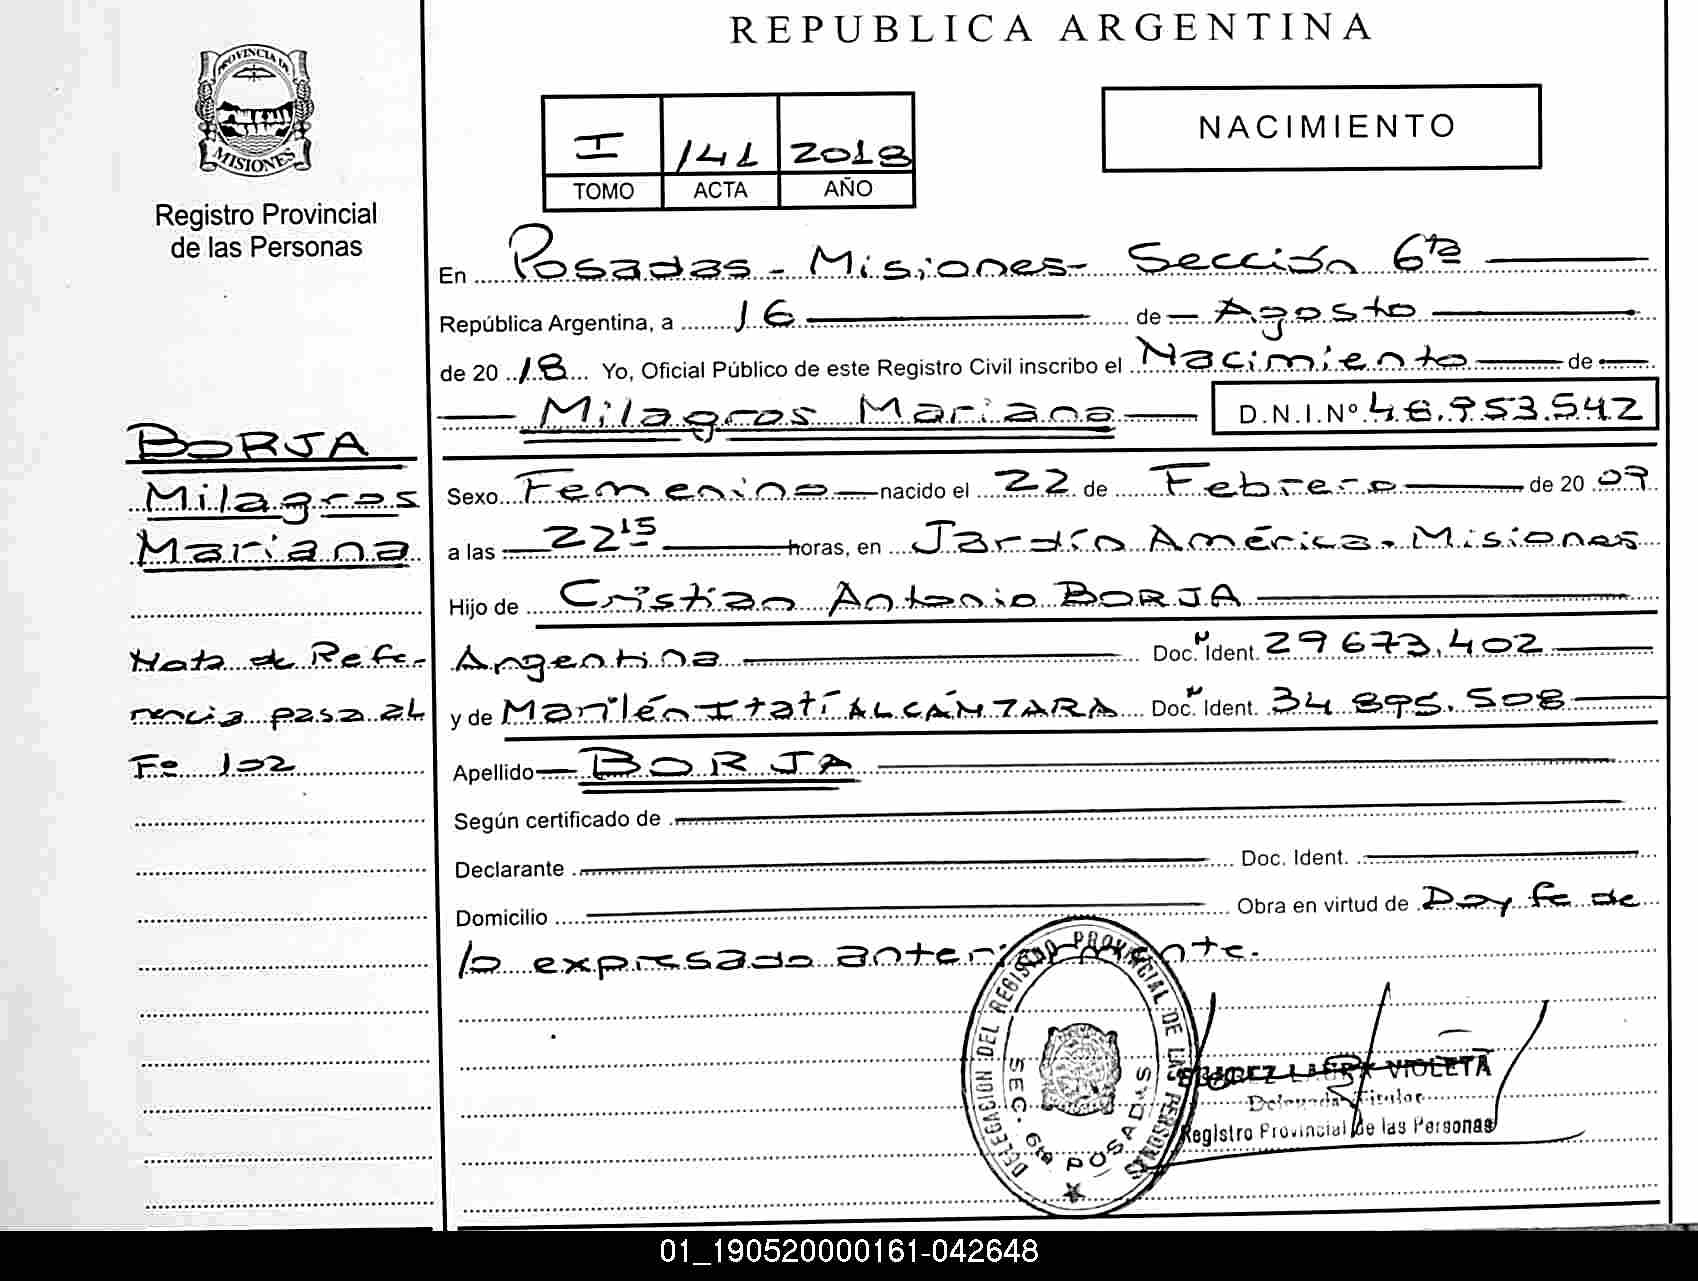 REPUBLICA ARGENTINA
PROVINCIA DE
MISIONES
Registro Provincial
de las Personas
I 141 2018
TOMO ACTA AÑO
NACIMIENTO
En Posadas - Misiones - Sección 6ta
República Argentina, a 16 de Agosto
de 20 18 Yo, Oficial Público de este Registro Civil inscribo el Nacimiento de
Milagros Mariana D.N.I.Nº
BORJA
Milagros
Mariana
Nota de Refe-
rencia pasa al
Fº 102
Sexo Femenino nacido el 22 de Febrero de 20 09
a las 22 15 horas, en Jardín América. Misiones
Hijo de Cristian Antonio BORJA
Argentina Doc. Ident. 29673.402
y de Marilén Itatí ALCÁNTARA Doc. Ident. 34 895.508
Apellido BORJA
Según certificado de
Declarante Doc. Ident.
Domicilio Obra en virtud de Doy fe de
lo expresado anteriormente.
DELEGACION DEL REGISTRO PROVINCIAL DE LAS PERSONAS
SEC. 6ta POSADAS
LAURA VIOLETA
Delegada Titular
Registro Provincial de las Personas
01_190520000161-042648